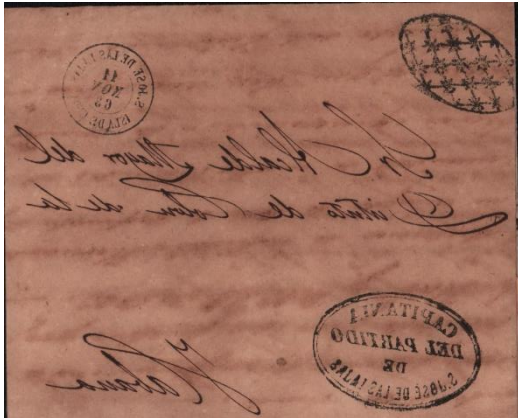 S. JOSE DE LAS LAJAS
11
NOV
ISLA DE CUBA
Sr. Alcalde Mayor del
Distrito de Colon de la
Habana
CAPITANIA
DEL PARTIDO
DE
S. JOSE DE LAS LAJAS